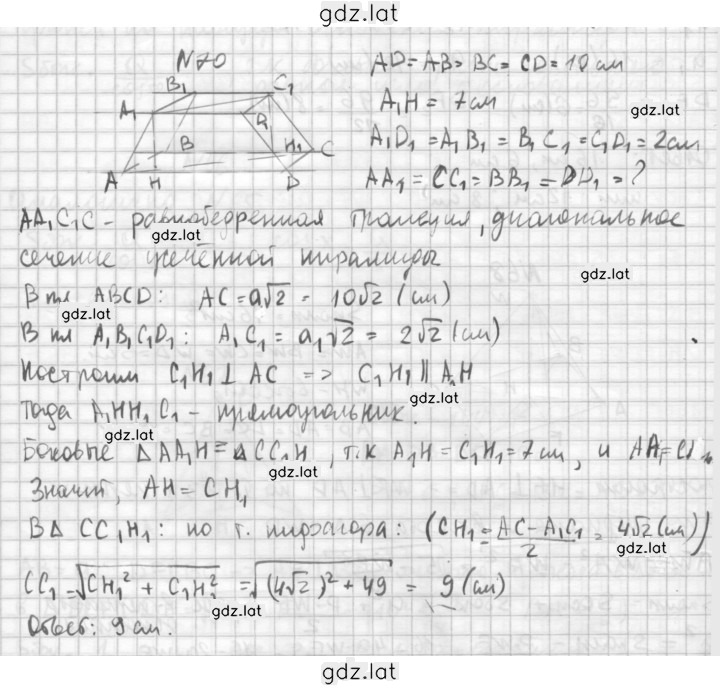 gdz.lat
N70
AD = AB = BC = CD = 10 см
A₁H = 7 см
gdz.lat
A₁D₁ = A₁B₁ = B₁C₁ = C₁D₁ = 2 см
AA₁ = CC₁ = BB₁ = DD₁ = ?
B₁ C₁
A₁ D₁
B H₁ C
A H D
AA₁C₁C - равнобедренная трапеция, диагональное
gdz.lat
сечение усечённой пирамиды
gdz.lat
В пл ABCD: AC = a√2 = 10√2 (см)
gdz.lat
В пл A₁B₁C₁D₁: A₁C₁ = a₁√2 = 2√2 (см)
Построим C₁H₁ ⊥ AC => C₁H₁ || A₁H
gdz.lat
Тогда A₁HH₁C₁ - прямоугольник.
gdz.lat
Боковые △AA₁H = △CC₁H, т.к A₁H = C₁H₁ = 7 см, и AA₁ = CC₁
gdz.lat
Значит, AH = CH₁
В △ CC₁H₁: по т. пифагора: (CH₁ = AC - A₁C₁ / 2 = 4√2 (см))
gdz.lat
CC₁ = √CH₁² + C₁H₁² = √(4√2)² + 49 = 9 (см)
gdz.lat
Ответ: 9 см.
gdz.lat